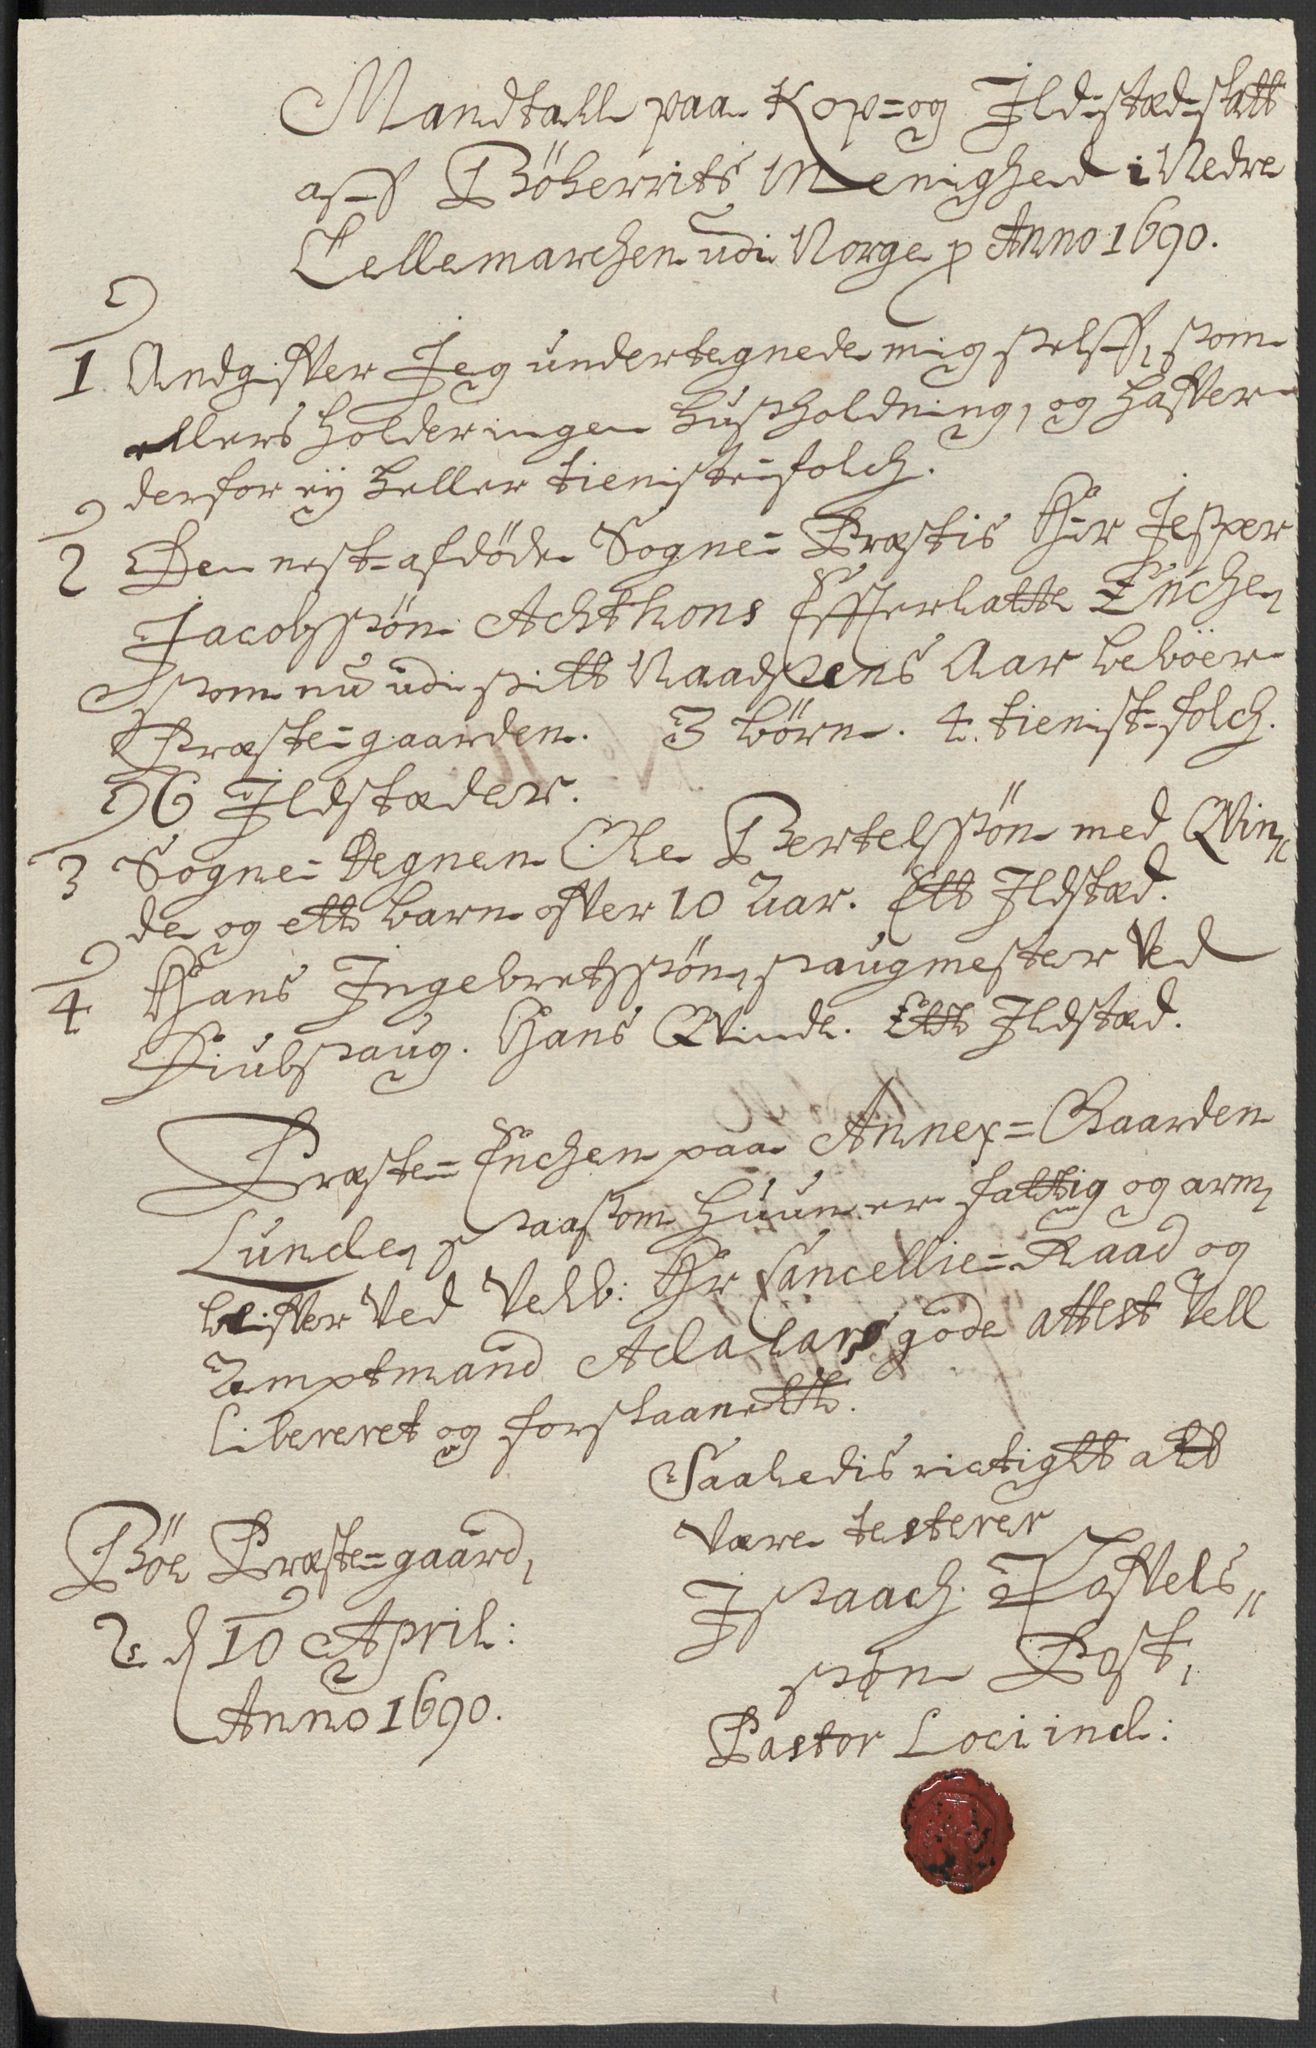 Mandtall paa Kop=og Ild=stæd=skatt
aff Böherrits Menighed i Nedre
Tellemarchen udi Norge p Anno 1690.
1 Andgiffver Jeg undertegnede mig self, som
ellers holder ingen husholdning, og haffver
derfor ey heller tieniste=folch.
2 Den nest=afdöde Sogne=Præstis Hr Jesper
Jacobssön Achthons Effterlatte Enche,
som nu udi sitt Naadsens Aar beböer
Præste=gaarden. 3 börn. 4. tienist=folch.
6 Ildstæder.
3 Sogne=Degnen Ole Bertelssön med Qvin„
de og ett barn ofver 10 Aar. Ett Ildstæd.
4 Hans Ingebretssön, saugmester ved
Hans Qvinde. Ett Ildstæd.
Præste=Enchen paa Annex=Gaarden
Lunde, saasom huun er fattig og arm,
blifver ved Velb: Hr Cancellie=Raad og
Amptmand Adelaers gode attest vell
libereret og forskaanett.
Saaledis rictigtt att
være testerer
Böe Præste=gaard,
d 10 April:
Anno 1690.
Isaach Toffvels„
søn Post,
Pastor Loci ind: